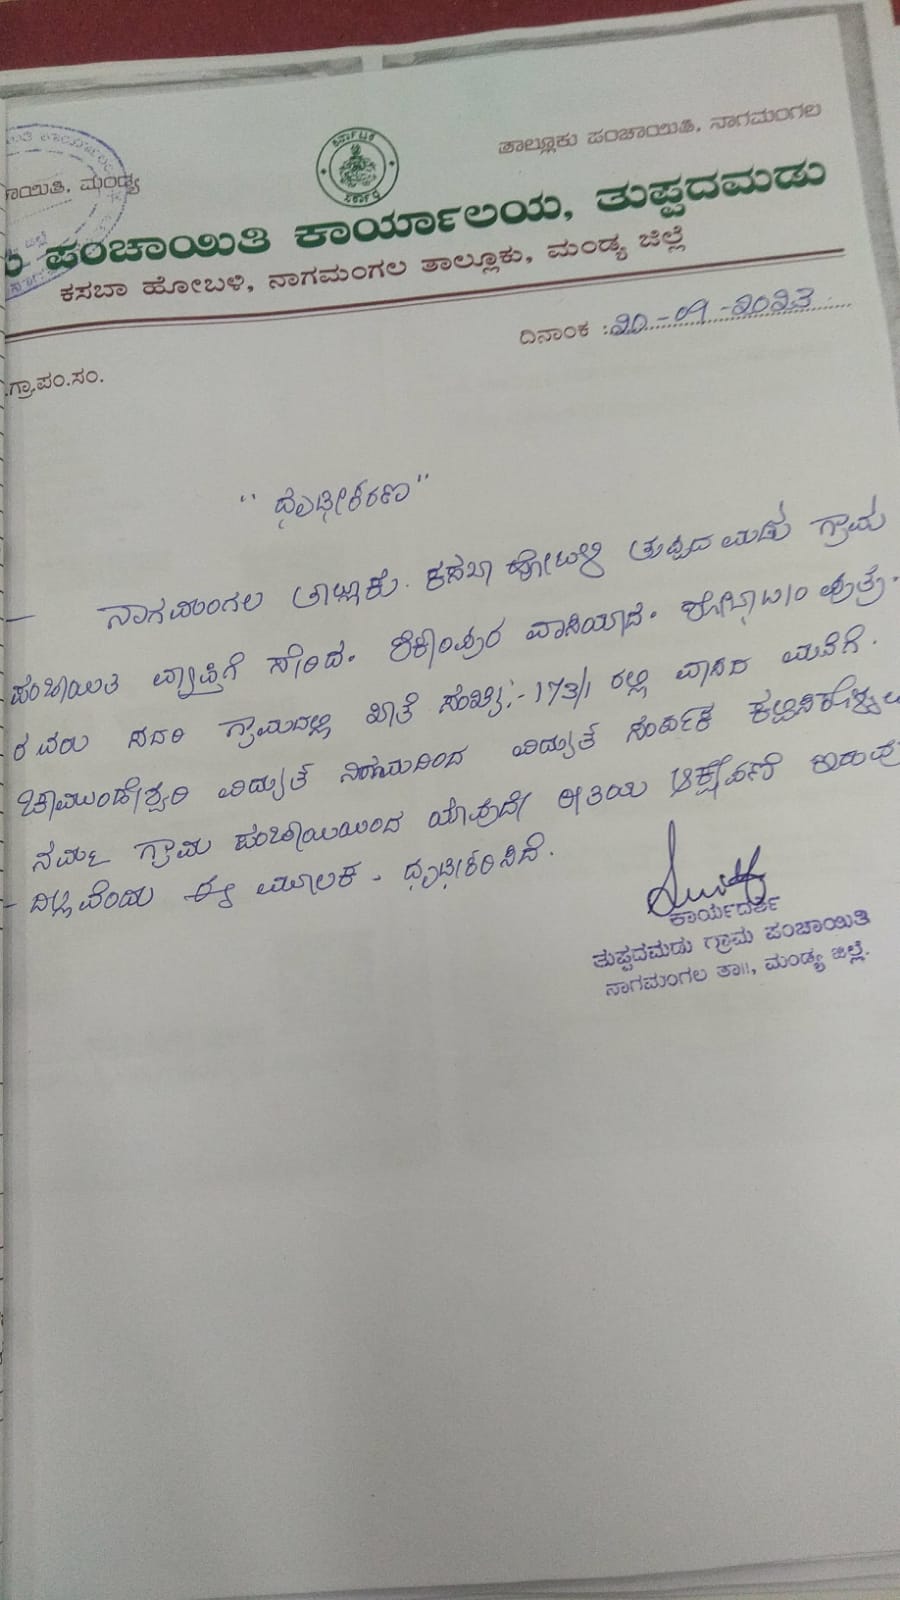 ತಾಲ್ಲೂಕು ಪಂಚಾಯಿತಿ, ನಾಗಮಂಗಲ
ಾಯಿತಿ, ಮಂಡ್ಯ
ಕರ್ನಾಟಕ ಸರ್ಕಾರ
ಪಂಚಾಯಿತಿ ಕಾರ್ಯಾಲಯ, ತುಪ್ಪದಮಡು
ಕಸಬಾ ಹೋಬಳಿ, ನಾಗಮಂಗಲ ತಾಲ್ಲೂಕು, ಮಂಡ್ಯ ಜಿಲ್ಲೆ
ದಿನಾಂಕ : ೨೦-೦೧-೨೦೨೩
.ಗ್ರಾ.ಪಂ.ಸಂ.
"ಧೃಢೀಕರಣ"
ನಾಗಮಂಗಲ ತಾಲ್ಲೂಕು. ಕಸಬಾ ಹೋಬಳಿ ತುಪ್ಪದಮಡು ಗ್ರಾಮ
ಪಂಚಾಯಿತಿ ವ್ಯಾಪ್ತಿಗೆ ಸೇರಿದ. ವಾಸಿಯಾದ.
ರವರು ಸದರಿ ಗ್ರಾಮದಲ್ಲಿ ಖಾತೆ ಸಂಖ್ಯೆ:- 173/1 ರಲ್ಲಿ ವಾಸದ ಮನೆಗೆ.
ಚಾಮುಂಡೇಶ್ವರಿ ವಿದ್ಯುತ್ ನಿಗಮದಿಂದ ವಿದ್ಯುತ್ ಸಂಪರ್ಕ
ನಮ್ಮ ಗ್ರಾಮ ಪಂಚಾಯಿಯಿಂದ ಯಾವುದೇ ರೀತಿಯ ಆಕ್ಷೇಪಣೆ ಇರುವು
-ದಿಲ್ಲವೆಂದು ಈ ಮೂಲಕ - ಧೃಢೀಕರಿಸಿದೆ.
ಕಾರ್ಯದರ್ಶಿ
ತುಪ್ಪದಮಡು ಗ್ರಾಮ ಪಂಚಾಯಿತಿ
ನಾಗಮಂಗಲ ತಾ||, ಮಂಡ್ಯ ಜಿಲ್ಲೆ.